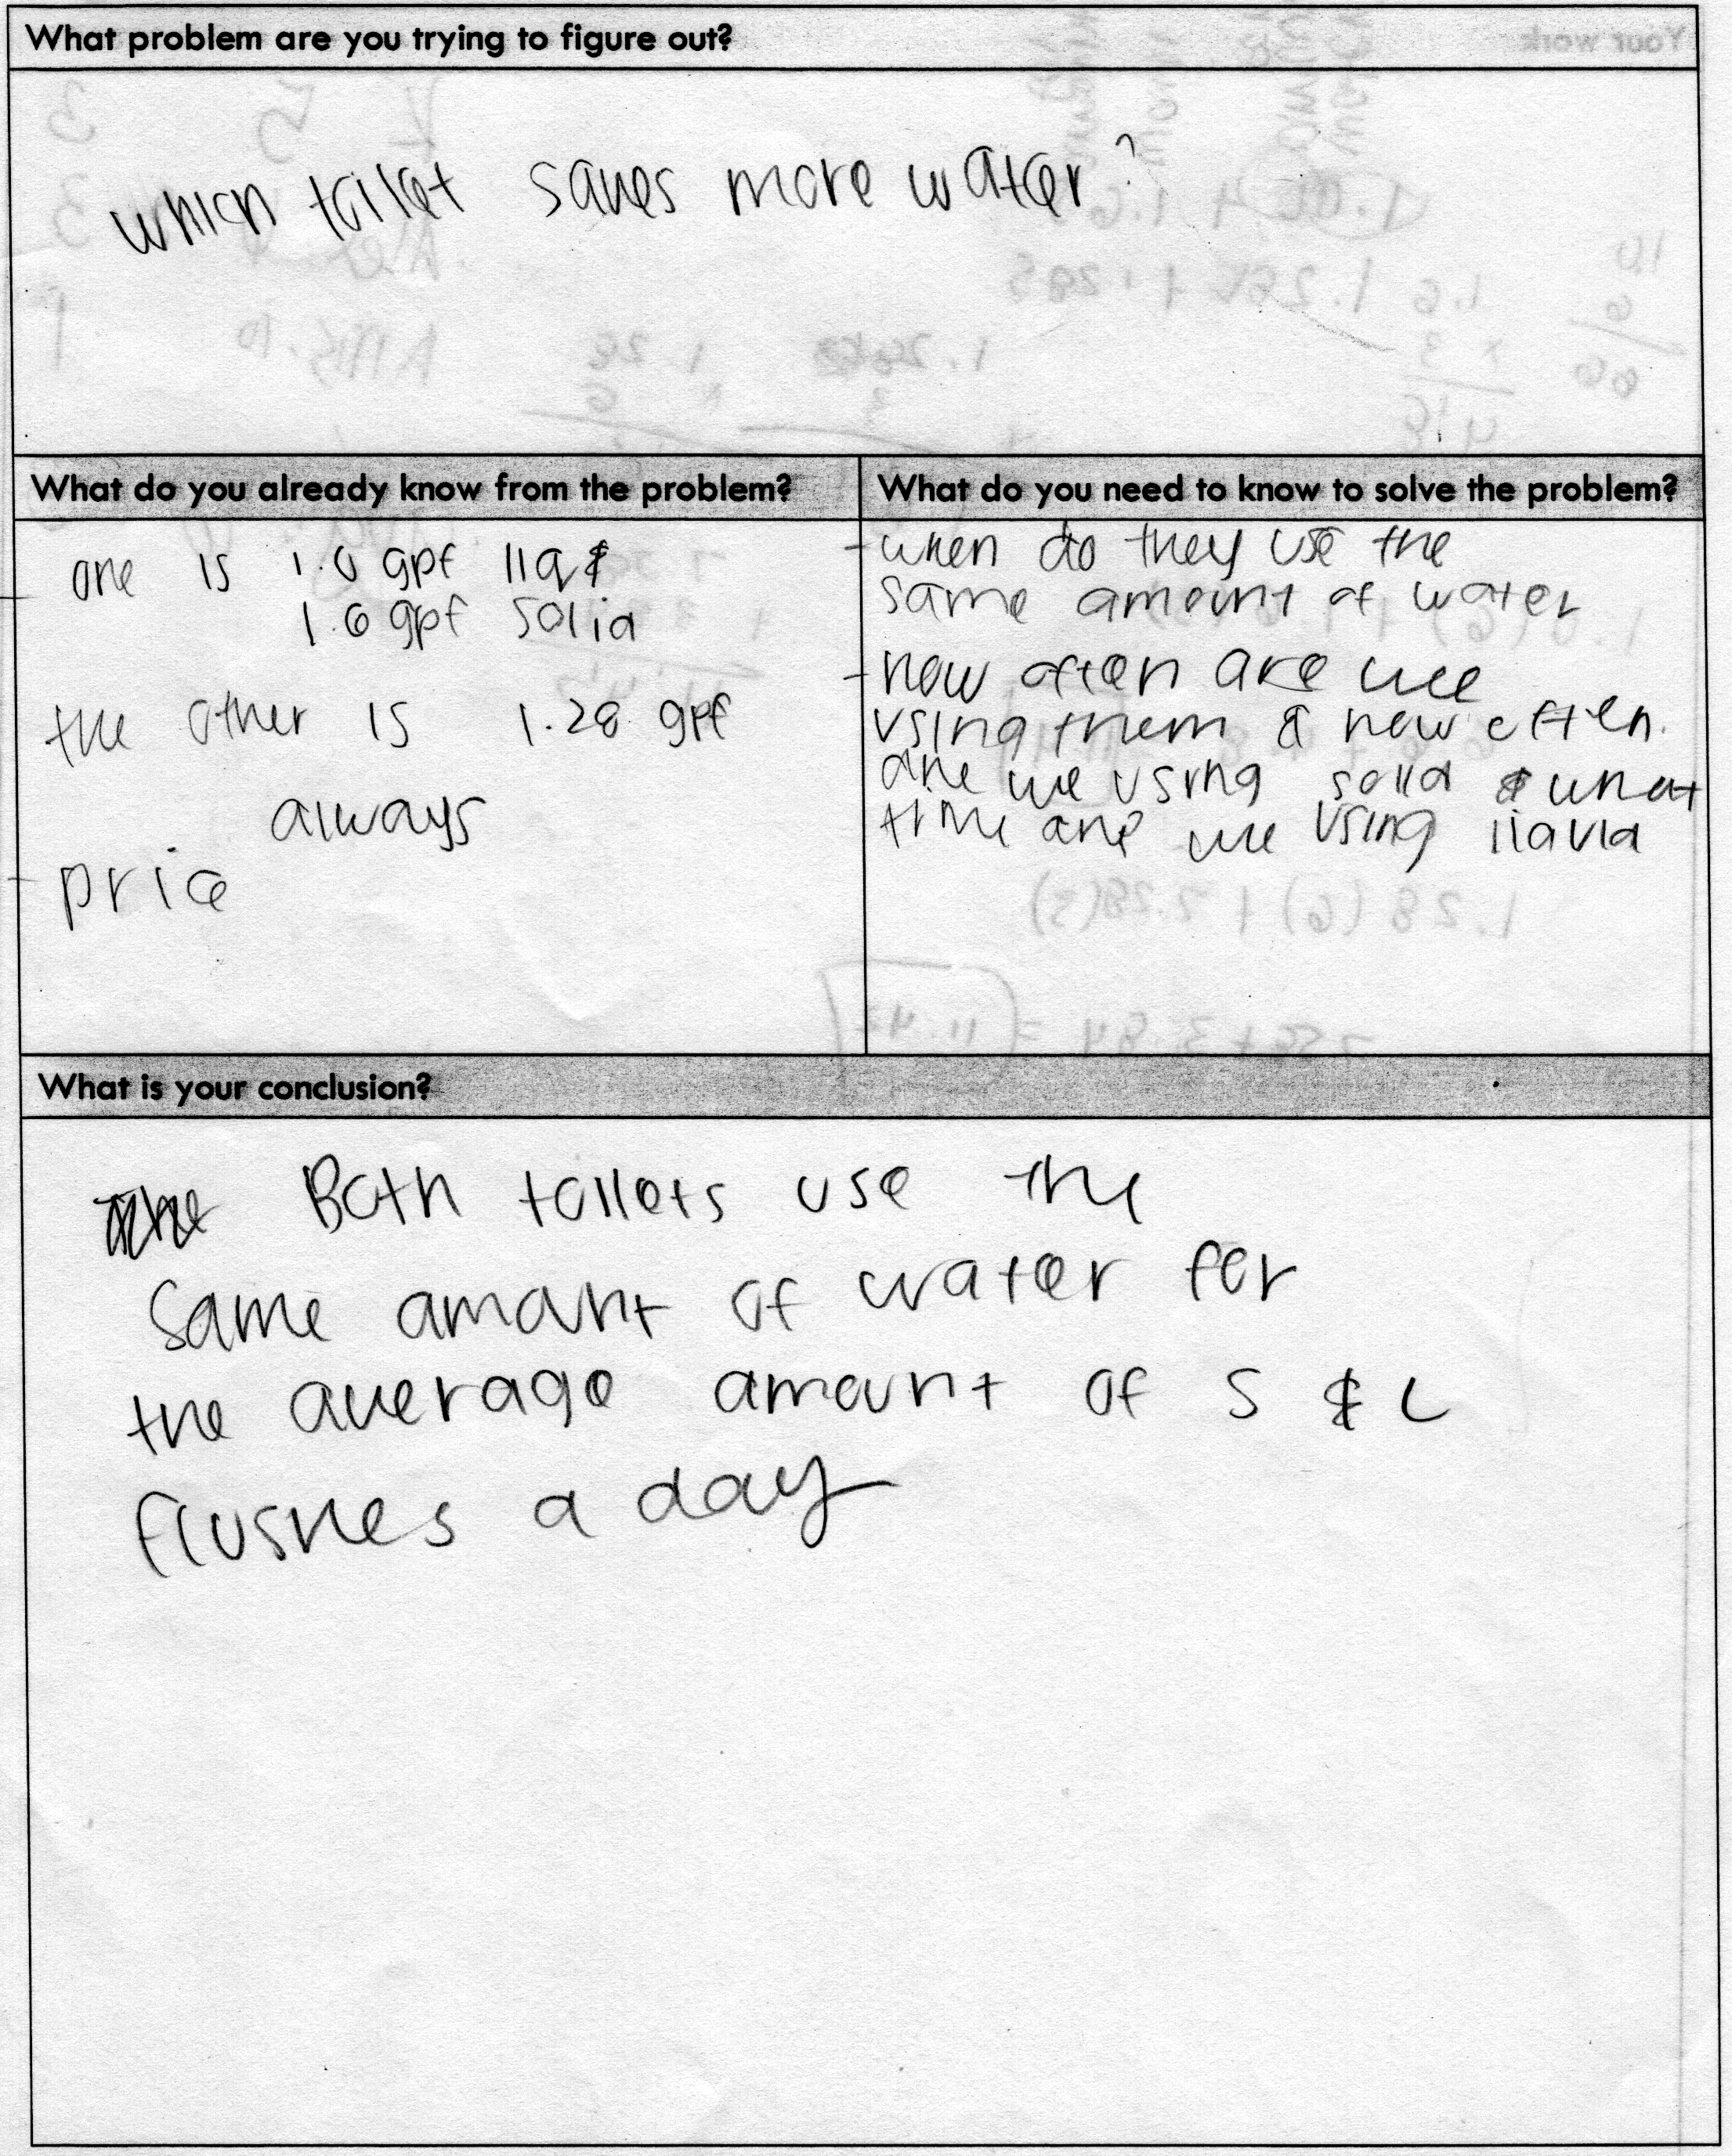 What problem are you trying to figure out?
which toilet saves more water?
What do you already know from the problem?
- one is 1.0 gpf liq &
1.6 gpf solid
the other is 1.28 gpf
always
- price
What do you need to know to solve the problem?
- when do they use the
same amount of water
- how often are we
using them & how often
are we using solid & what
time are we using liquid
What is your conclusion?
Both toilets use the
same amount of water for
the average amount of S & L
flushes a day